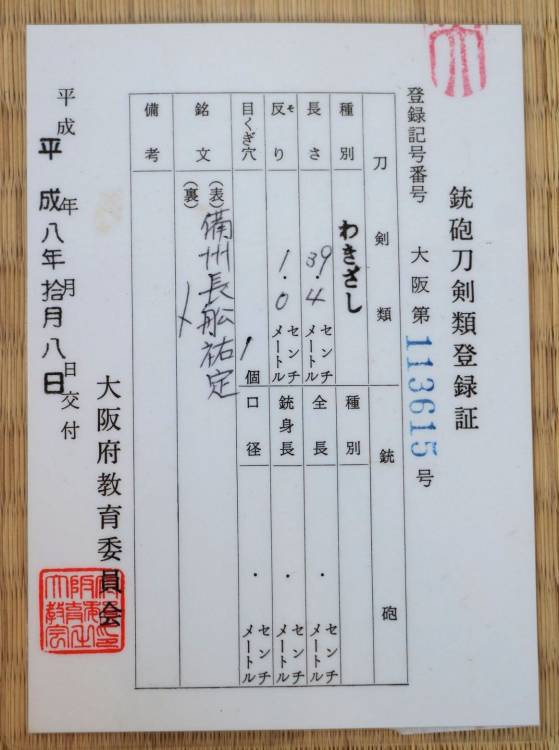 銃砲刀剣類登録証
登録記号番号 大阪第113615号
刀剣類
銃砲
種別 わきざし
種別
長さ 39.4 センチメートル
全長 ・ センチメートル
反り ソリ 1.0 センチメートル
銃身長 ・ センチメートル
目くぎ穴 1個
口径 ・ センチメートル
銘文 (表) 備州長船祐定
(裏)
備考
平成 年 月 日交付
平成八年拾月八日
大阪府教育委員会